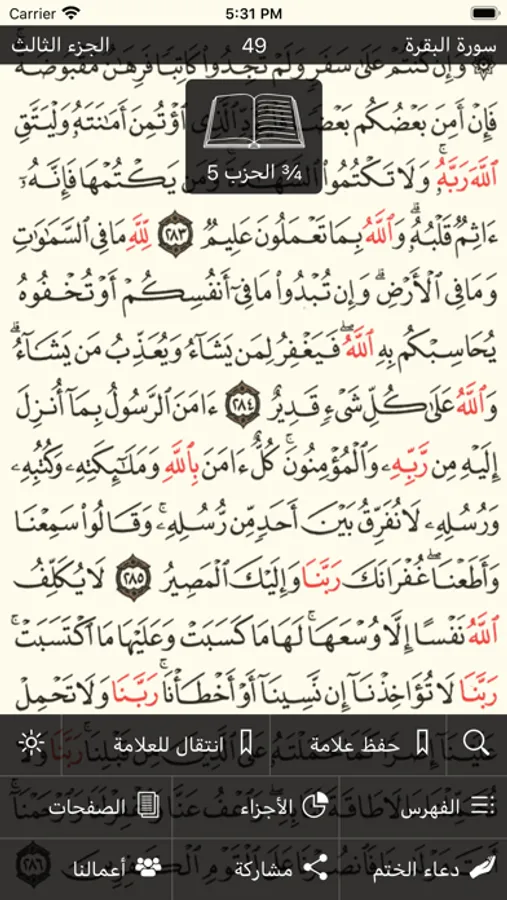 Carrier 5:31 PM
سورة البقرة 49 الجزء الثالث
۞ وَإِن كُنتُمْ عَلَىٰ سَفَرٍ وَلَمْ تَجِدُوا۟ كَاتِبًا فَرِهَـٰنٌ مَّقْبُوضَةٌ
فَإِنْ أَمِنَ بَعْضُكُم بَعْضًا فَلْيُؤَدِّ ٱلَّذِى ٱؤْتُمِنَ أَمَـٰنَتَهُۥ وَلْيَتَّقِ
¾ الحزب 5
ٱللَّهَ رَبَّهُۥ ۗ وَلَا تَكْتُمُوا۟ ٱلشَّهَـٰدَةَ ۚ وَمَن يَكْتُمْهَا فَإِنَّهُۥٓ
ءَاثِمٌ قَلْبُهُۥ ۗ وَٱللَّهُ بِمَا تَعْمَلُونَ عَلِيمٌ ٢٨٣ لِّلَّهِ مَا فِى ٱلسَّمَـٰوَٰتِ
وَمَا فِى ٱلْأَرْضِ ۗ وَإِن تُبْدُوا۟ مَا فِىٓ أَنفُسِكُمْ أَوْ تُخْفُوهُ
يُحَاسِبْكُم بِهِ ٱللَّهُ ۖ فَيَغْفِرُ لِمَن يَشَآءُ وَيُعَذِّبُ مَن يَشَآءُ ۗ
وَٱللَّهُ عَلَىٰ كُلِّ شَىْءٍ قَدِيرٌ ٢٨٤ ءَامَنَ ٱلرَّسُولُ بِمَآ أُنزِلَ
إِلَيْهِ مِن رَّبِّهِۦ وَٱلْمُؤْمِنُونَ ۚ كُلٌّ ءَامَنَ بِٱللَّهِ وَمَلَـٰٓئِكَتِهِۦ وَكُتُبِهِۦ
وَرُسُلِهِۦ لَا نُفَرِّقُ بَيْنَ أَحَدٍ مِّن رُّسُلِهِۦ ۚ وَقَالُوا۟ سَمِعْنَا
وَأَطَعْنَا ۖ غُفْرَانَكَ رَبَّنَا وَإِلَيْكَ ٱلْمَصِيرُ ٢٨٥ لَا يُكَلِّفُ
ٱللَّهُ نَفْسًا إِلَّا وُسْعَهَا ۚ لَهَا مَا كَسَبَتْ وَعَلَيْهَا مَا ٱكْتَسَبَتْ ۗ
رَبَّنَا لَا تُؤَاخِذْنَآ إِن نَّسِينَآ أَوْ أَخْطَأْنَا ۚ رَبَّنَا وَلَا تَحْمِلْ
حفظ علامة انتقال للعلامة
الفهرس الأجزاء الصفحات
دعاء الختم مشاركة أعمالنا